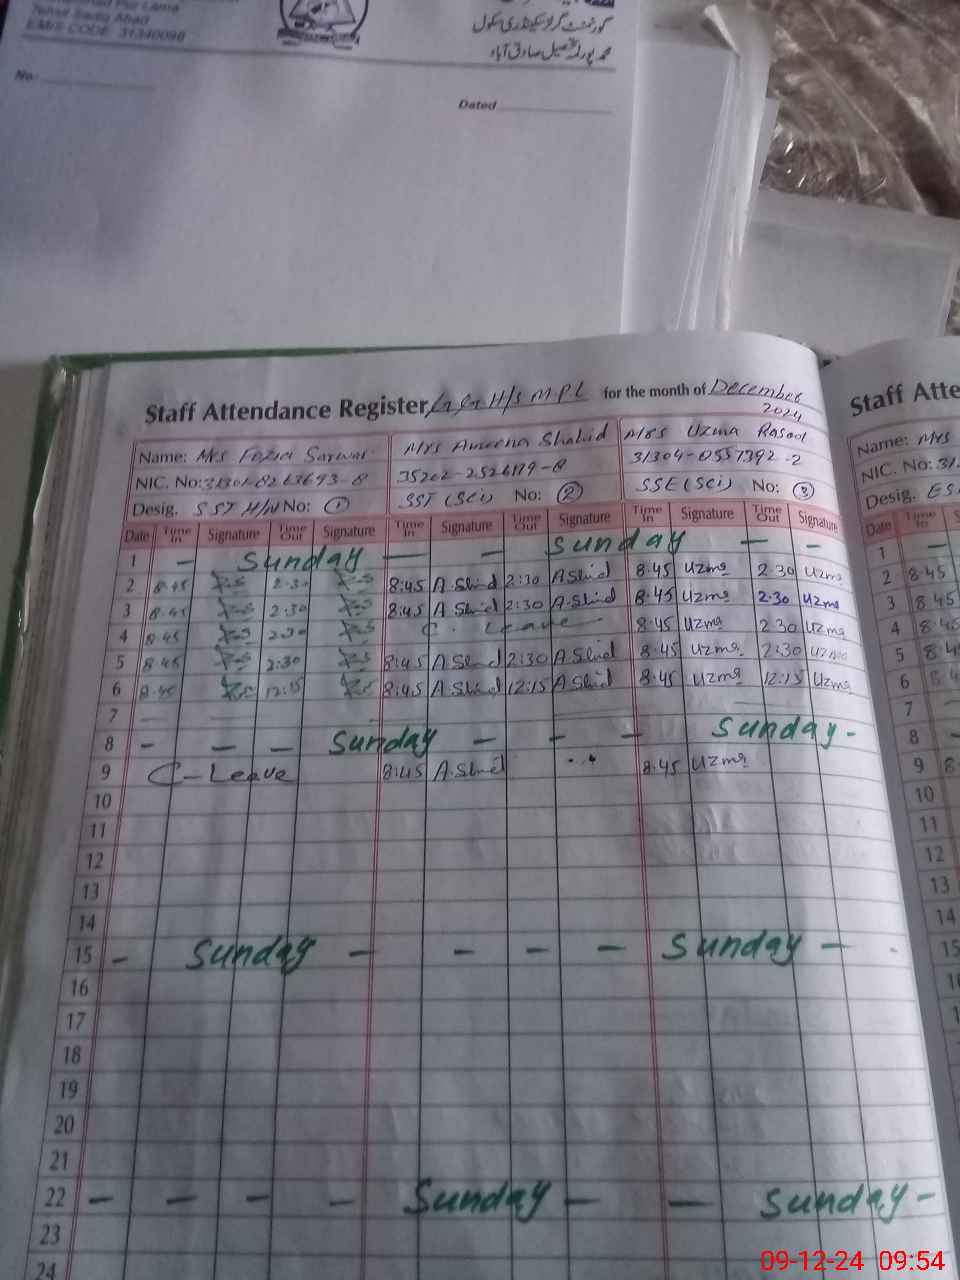 Tehsil Sadiq Abad
EMIS CODE 31340098
گورنمنٹ گرلز سیکنڈری سکول
محمد پور لمہ تحصیل صادق آباد
No.
Dated
Staff Attendance Register H/S M.P.L for the month of December 2024
Name: Mrs Fozia Sarwar Mrs Ameena Shahid Mrs Uzma Rasool
NIC. No: 35202-2526179-8 31304-0557392-2
Desig. SST H/W No: 1 SST (Sci) No: 2 SSE (Sci) No: 3
Date Time In Signature Time Out Signature Time In Signature Time Out Signature Time In Signature Time Out Signature
1 - Sunday - - Sunday - -
2 8:45 2:30 8:45 A.Shid 2:30 A.Shid 8:45 Uzma 2:30 Uzma
3 8:45 2:30 8:45 A.Shid 2:30 A.Shid 8:45 Uzma 2:30 Uzma
4 8:45 2:30 C. Leave 8:45 Uzma 2:30 Uzma
5 8:45 2:30 8:45 A.Shid 2:30 A.Shid 8:45 Uzma 2:30 Uzma
6 8:45 12:15 8:45 A.Shid 12:15 A.Shid 8:45 Uzma 12:15 Uzma
7
8 - - - Sunday - - - Sunday -
9 C-Leave 8:45 A.Shid 8:45 Uzma
10
11
12
13
14
15 - Sunday - - - - Sunday - -
16
17
18
19
20
21
22 - - - - Sunday - - Sunday -
23
24
Staff Atte
Name: Mrs
NIC. No: 31
Desig.
Date Time In
1 -
2 8:45
3 8:45
4 8:45
5 8:4
6 8:4
7
8 -
9 8
10
11
12
13
14
15
09-12-24 09:54